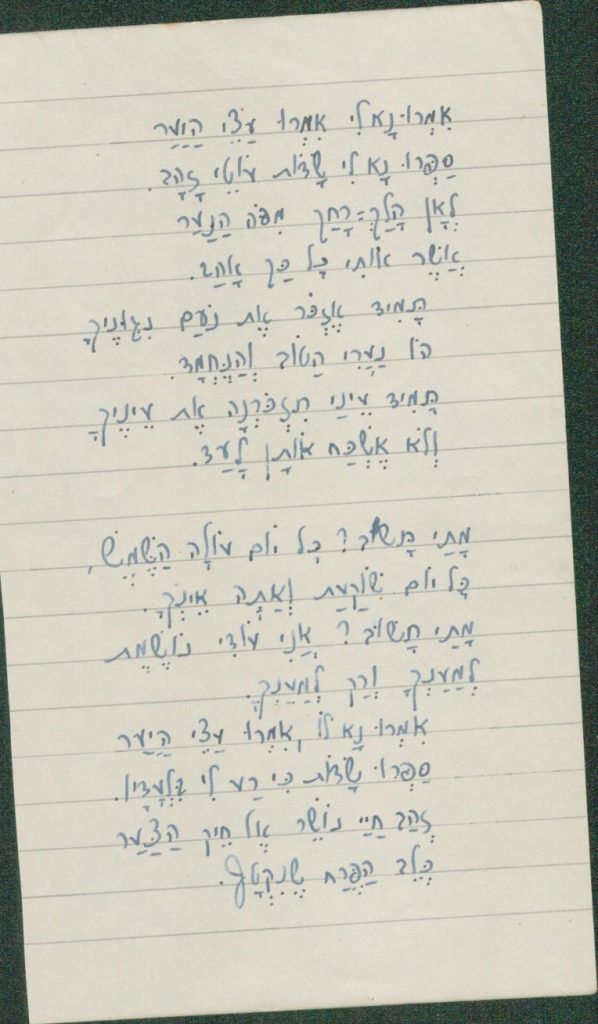 אִמְרוּ-נָא לִי אִמְרוּ עֲצֵי הַיַּעַר
סַפְּרוּ נָא לִי שָׂדוֹת עוֹטֵי זָהָב.
לְאָן הָלַךְ-רָחַק מִפֹּה הַנַּעַר
אֲשֶׁר אוֹתִי כָּל כַּךְ אָהַב.
תָּמִיד אֶזְכֹּר אֶת נֹעַם נִגּוּנֶיךָ
הוֹ נַעֲרִי הַטּוֹב וְהַנֶּחְמָד.
תָּמִיד עֵינַי תִּזְכֹּרְנָה אֶת עֵינֶיךָ
וְלֹא אֶשְׁכַּח אוֹתָן לָעַד.
מָתַי תָּשׁוּב? כָּל יוֹם עוֹלָה הַשֶּׁמֶשׁ,
כָּל יוֹם שׁוֹקַעַת וְאַתָּה אֵינְךָ.
מָתַי תָּשׁוּב? אֲנִי עוֹדִי נוֹשֶׁמֶת
לְמַעַנְךָ וְרַק לְמַעַנְךָ.
אִמְרוּ נָא לוֹ, אִמְרוּ עֲצֵי הַיַּעַר
סַפְּרוּ שָׂדוֹת כִּי רַע לִי בִּלְעָדָיו.
זְהַב חַיַּי נוֹשֵׁר אֶל חֵיק הַצַּעַר
כְּלֵב הַפֶּרַח שֶׁנִּקְטָף.